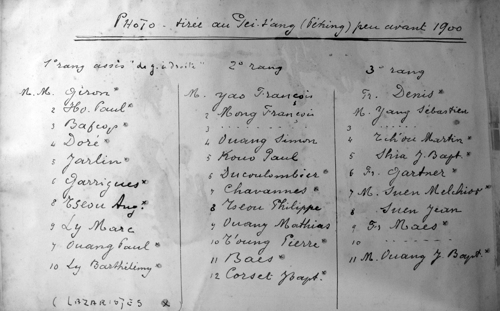 PHOTO - tirée au Pei-t'ang (Péking) peu avant 1900
1er rang assis "de g. à droite"
N. M. Giron *
2 Ho. Paul *
3 Bafcop *
4 Doré *
5 Jarlin *
6 Garrigues *
8 Tseou Aug. *
9 Ly Marc
7 Ouang Paul *
10 Ly Barthélémy *
(LAZARISTES *)
2e rang
M. Yao François
2 Mong François
3 ........
4 Ouang Simon
5 Kouo Paul
6 Ducoulombier *
7 Chavannes *
8 Tseou Philippe
9 Ouang Mathias
10 T'oung Pierre *
11 Baes *
12 Corset J Bapt. *
3e rang
Fr. Denis *
M. Yang Sébastien
3 ........
4 Martin *
5 Shia J. Bapt *
6 Fr. Gartner *
7 M. Suen Melchior *
8 Suen Jean
9 Fr. Maes *
10 ........
11 M. Ouang J. Bapt.